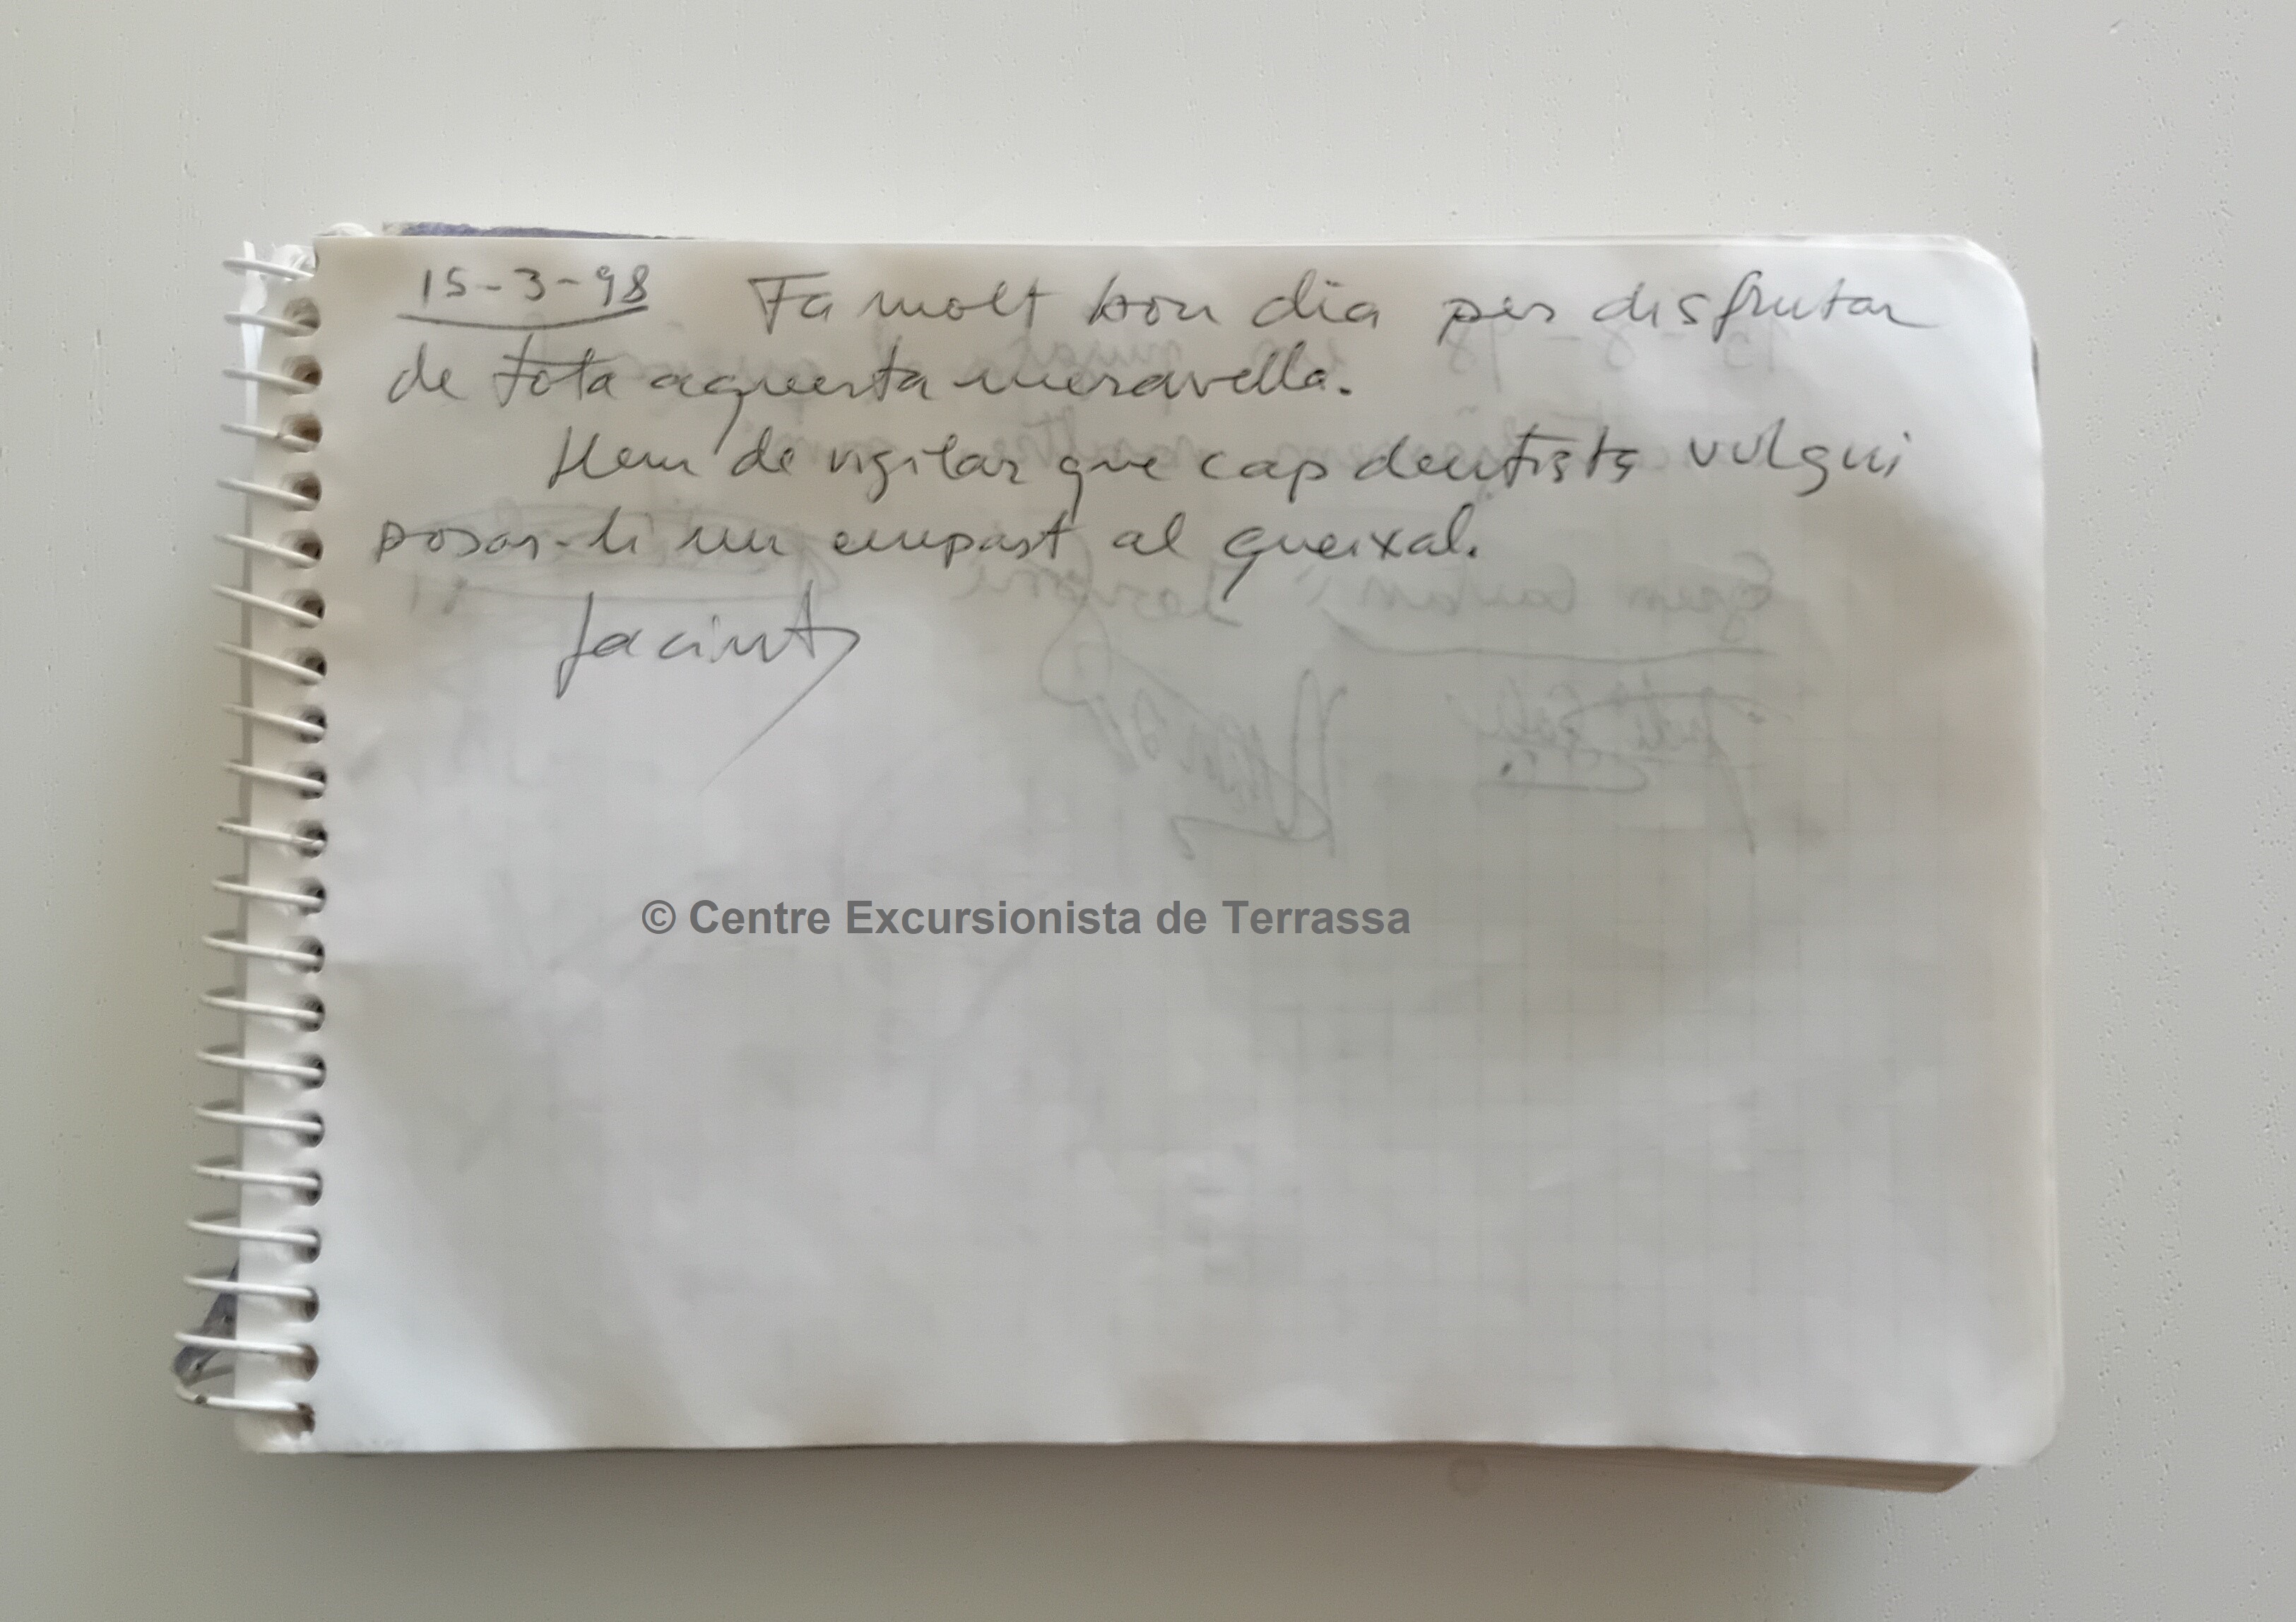 15-3-98 Fa molt bon dia per disfrutar
de tota aquesta meravella.
Hem de vigilar que cap dentista vulgui
posar-li un empast al queixal.
Jacint
© Centre Excursionista de Terrassa